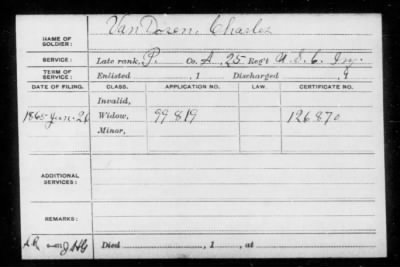 NAME OF SOLDIER: VanDoren, Charles
SERVICE: Late rank, P. Co. A, 25 Reg't U.S.C. Inf.
TERM OF SERVICE: Enlisted , 1 Discharged , 1
DATE OF FILING. CLASS. APPLICATION NO. LAW. CERTIFICATE NO.
Invalid,
1865 Jun. 26 Widow, 99 819 126 870
Minor,
ADDITIONAL SERVICES:
REMARKS:
Died , 1 , at